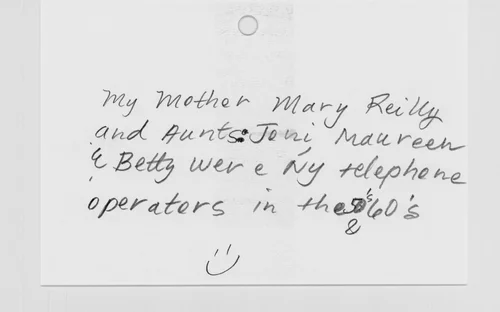 My Mother Mary Reilly
and Aunts: Joni, Maureen
& Betty were NY telephone
operators in the 50's & 60's